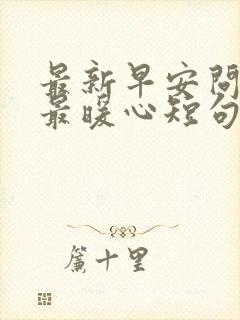 最新早安问
最暖心短句
簾十里